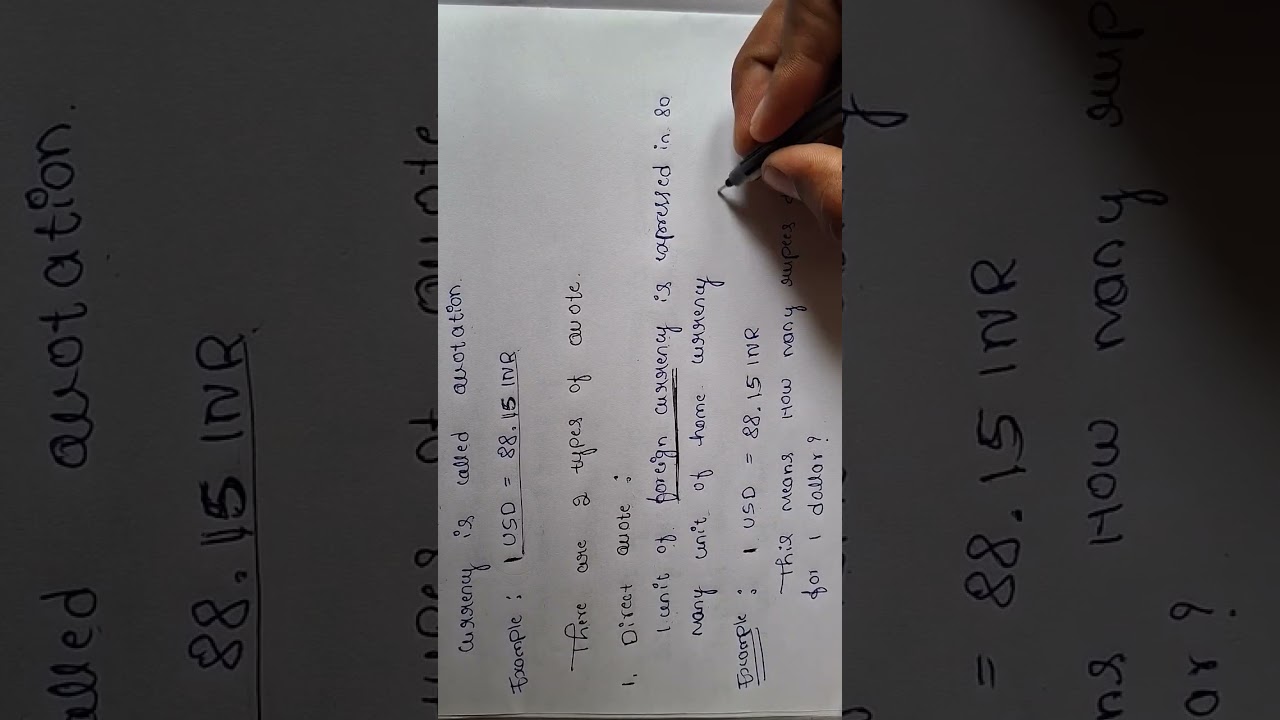 currency is called quotation.
Example : 1 USD = 88.15 INR
There are 2 types of quote.
1. Direct quote :
1 unit of foreign currency is expressed in so
many unit of home currency
Example : 1 USD = 88.15 INR
This means How many rupees
for 1 dollar ?